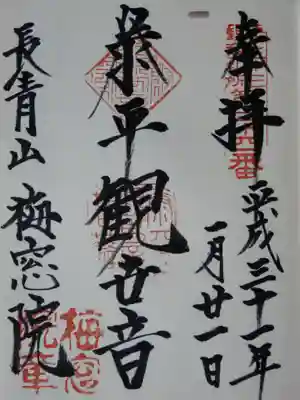 奉拝
平成三十一年
一月廿一日
泰平観世音
長青山 梅窓院
梅窓
院章